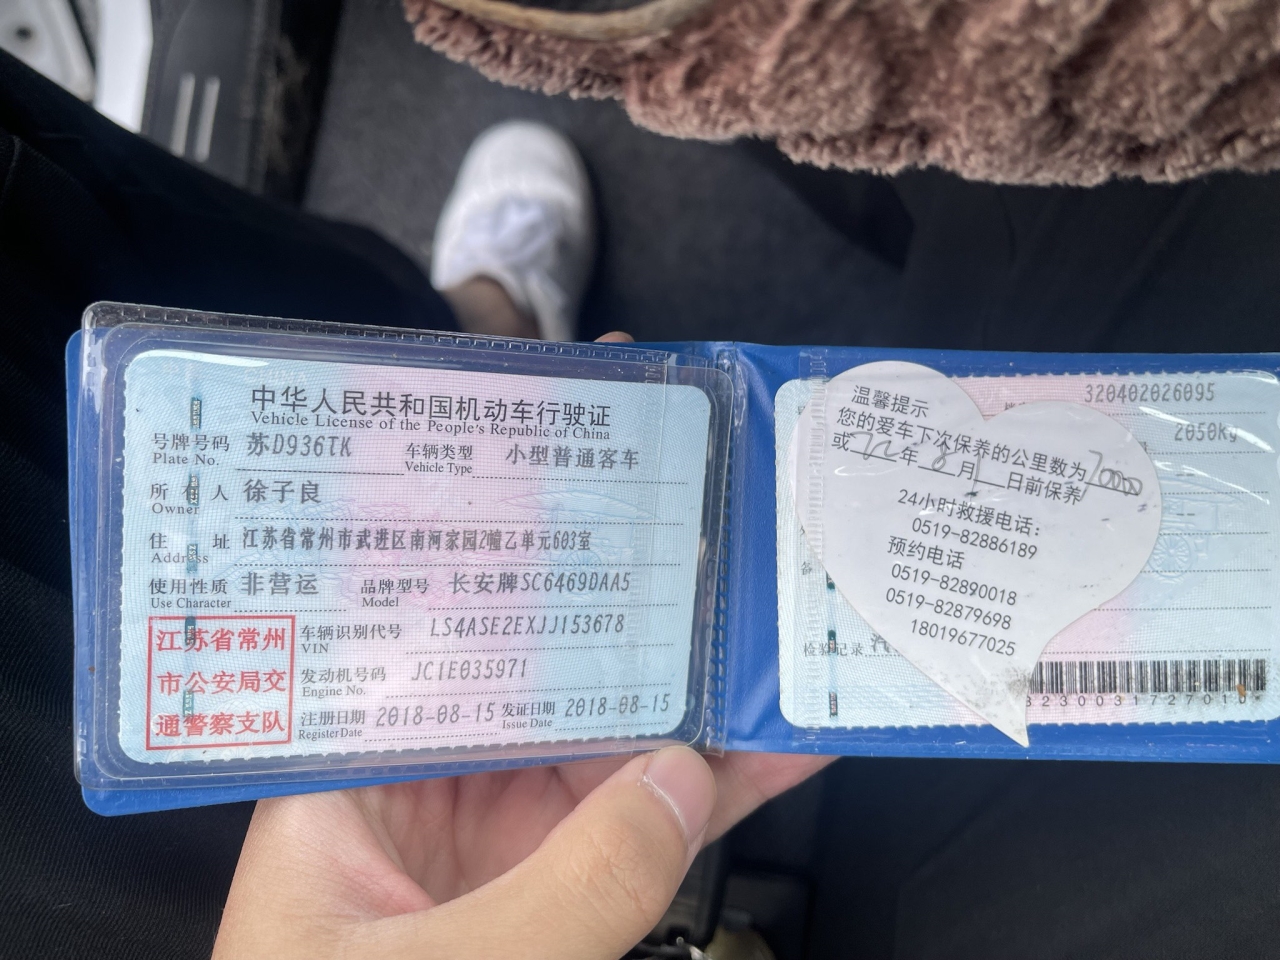 中华人民共和国机动车行驶证
Vehicle License of the People's Republic of China
号牌号码 苏D936TK 车辆类型 小型普通客车
Plate No. Vehicle Type
所有人 徐子良
Owner
住址 江苏省常州市武进区南河家园2幢乙单元603室
Address
使用性质 非营运 品牌型号 长安牌SC6469DAA5
Use Character Model
车辆识别代号 LS4ASE2EXJJ153678
VIN
发动机号码 JC1E035971
Engine No.
注册日期 2018-08-15 发证日期 2018-08-15
Register Date Issue Date
江苏省常州
市公安局交
通警察支队
320402026095
2050Kg
温馨提示
您的爱车下次保养的公里数为70000
或22年8月 日前保养
24小时救援电话:
0519-82886189
预约电话
0519-82890018
0519-82879698
18019677025
检验记录